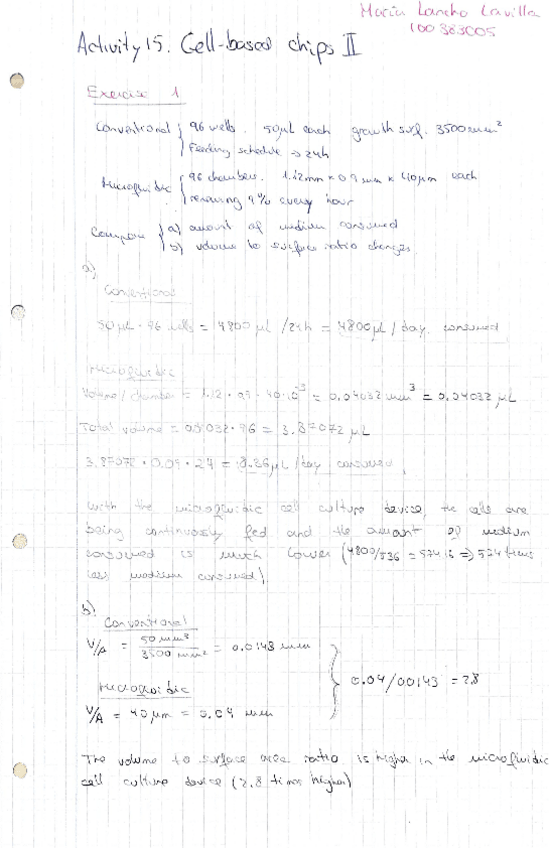 Maria Lancho Lavilla
100383005
Activity 15. Cell-based chips II
Exercise 1
Conventional { 96 wells. 50µL each growth surf. 3500mm²
Feeding schedule → 24h
Microfluidic { 96 chambers. 1.12mm × 0.9mm × 40µm each
renewing 9% every hour
Compare { a) amount of medium consumed
b) volume to surface ratio changes
a)
Conventional
50µL · 96 wells = 4800 µL /24h = 4800µL / day consumed
Microfluidic
Volume/chamber = 1.12 · 0.9 · 40·10⁻³ = 0.04032 mm³ = 0.04032 µL
Total volume = 0.04032 · 96 = 3.87072 µL
3.87072 · 0.09 · 24 = 8.36µL /day consumed
With the microfluidic cell culture device, the cells are
being continuously fed and the amount of medium
consumed is much lower (4800/ = => 574 times
less medium consumed)
b)
Conventional
V/A = 50 mm³ / 3500 mm² = 0.0143 mm
0.04/00143 = 2.8
Microfluidic
V/A = 40µm = 0.04 mm
The volume to surface area ratio is higher in the microfluidic
cell culture device (2.8 times higher)